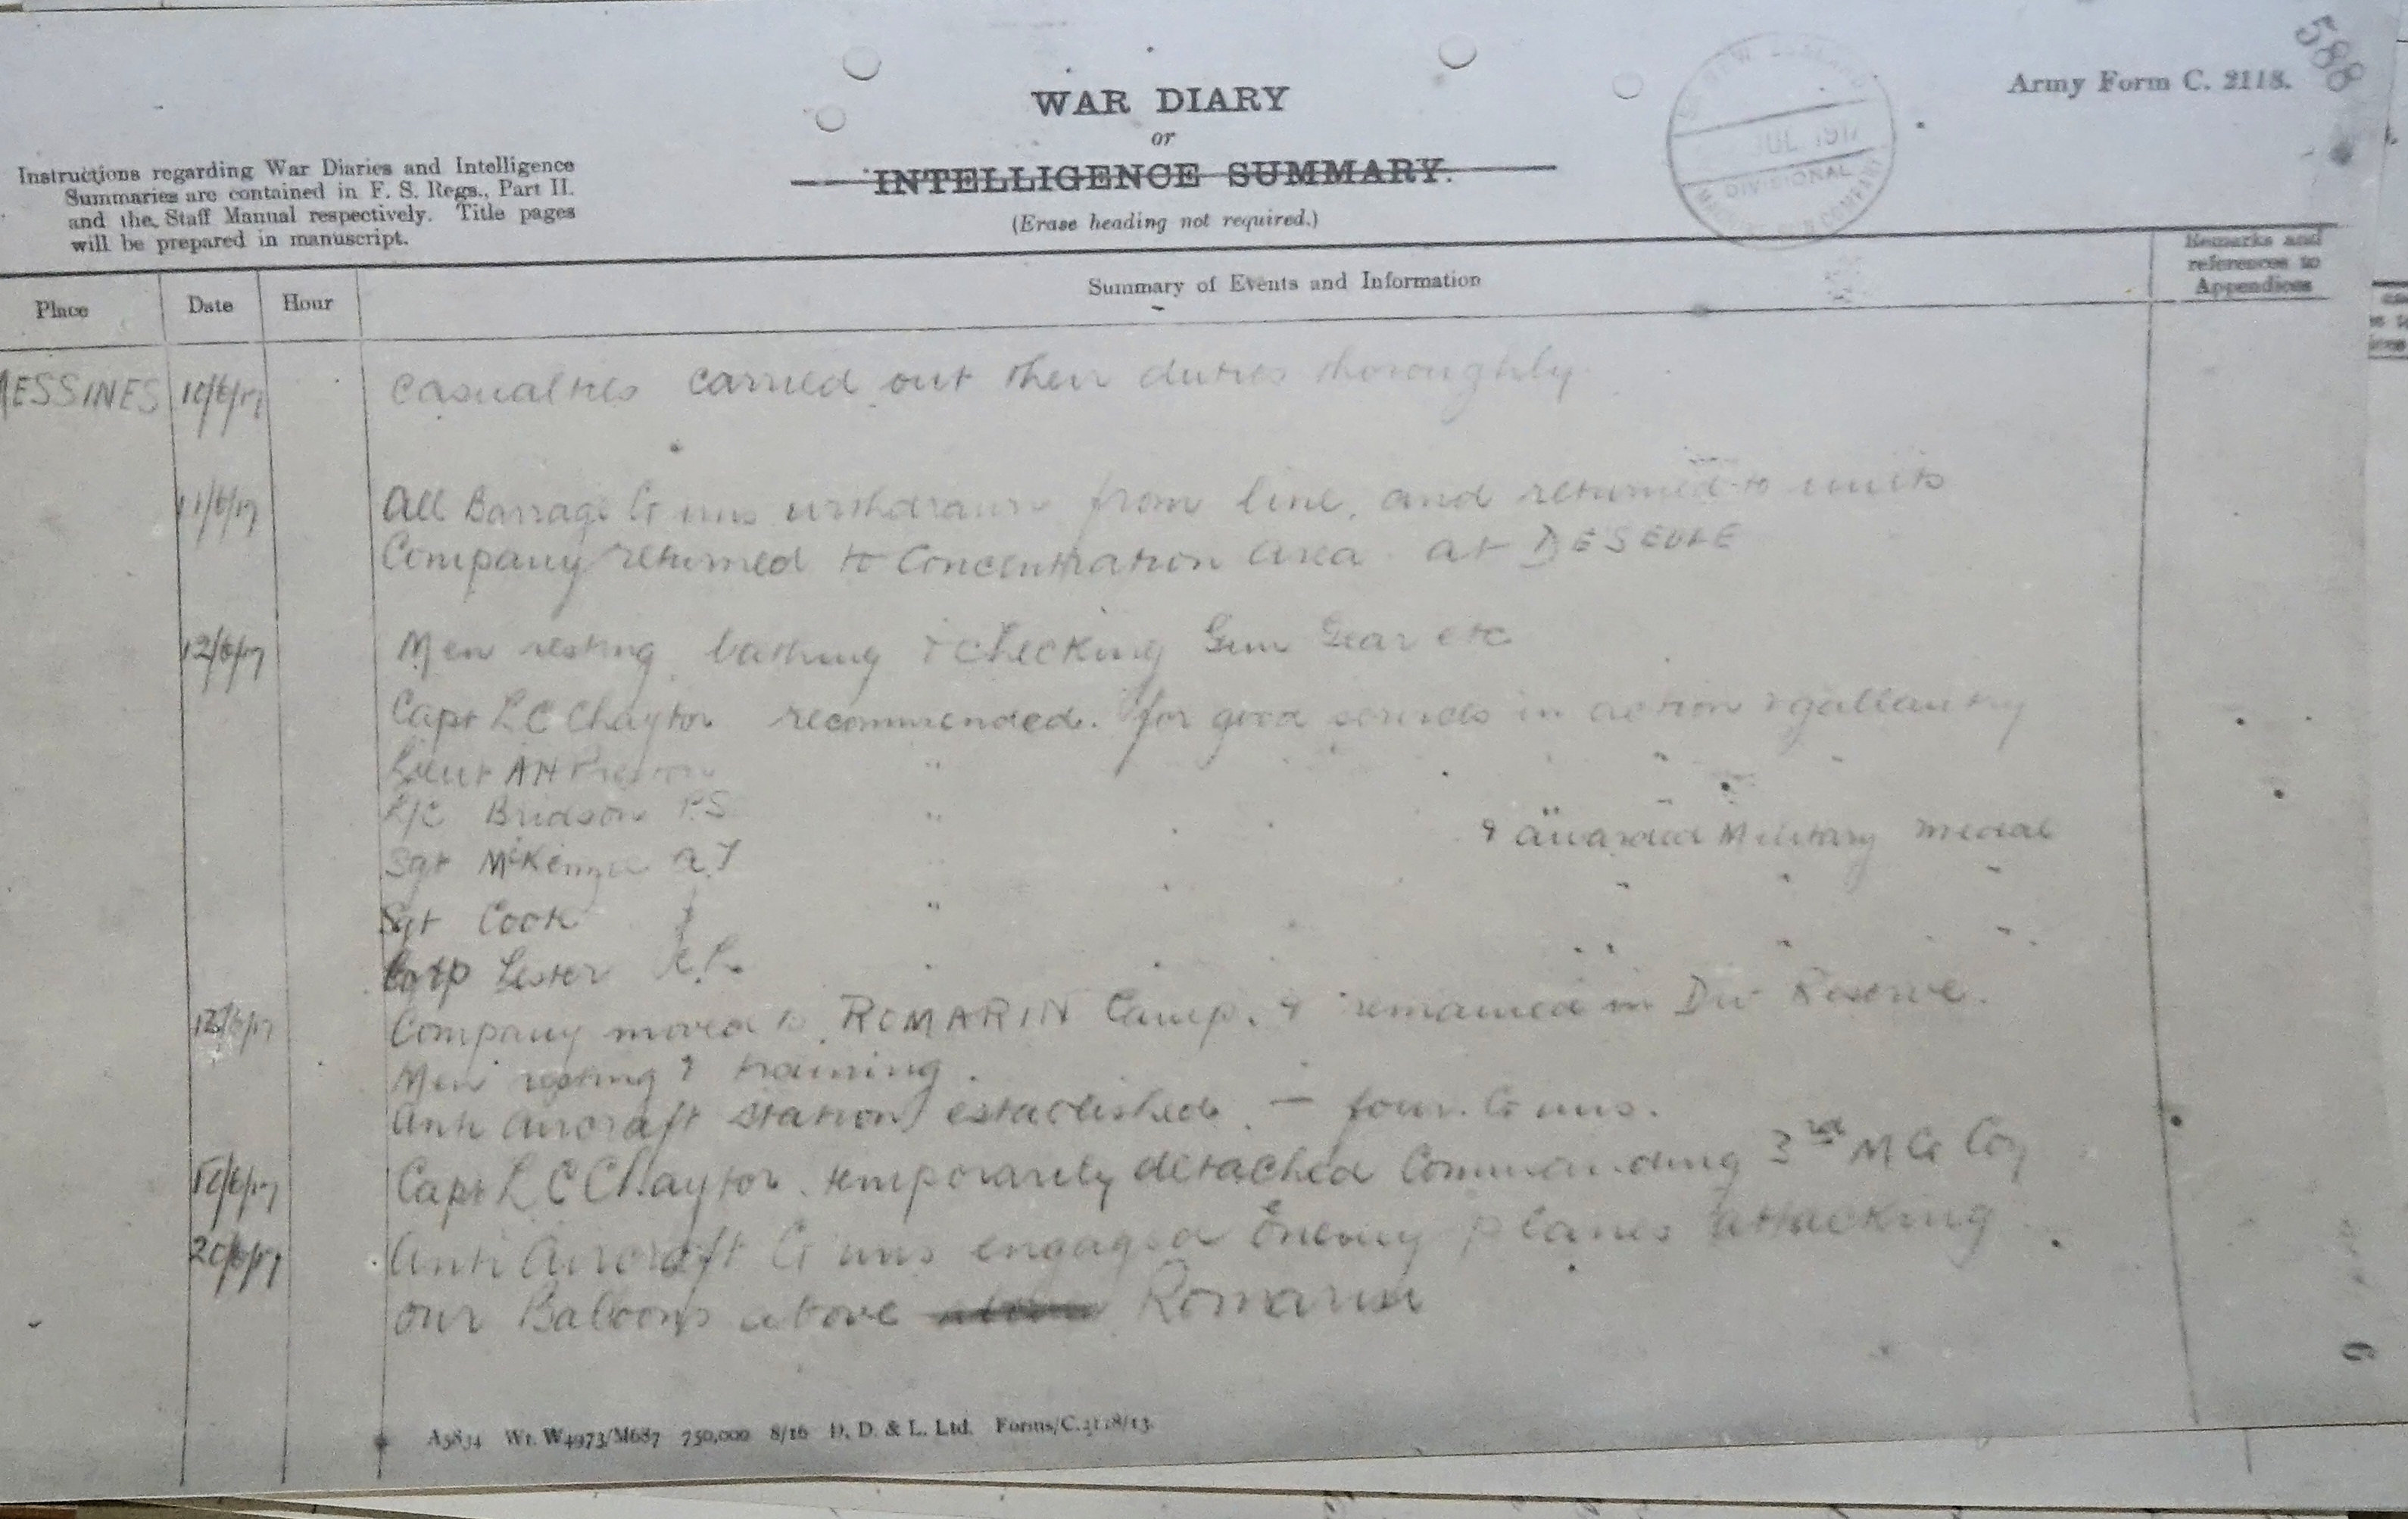 588
Army Form C. 2118.
WAR DIARY
or
INTELLIGENCE SUMMARY.
(Erase heading not required.)
Instructions regarding War Diaries and Intelligence
Summaries are contained in F. S. Regs., Part II.
and the Staff Manual respectively. Title pages
will be prepared in manuscript.
JUL 191
DIVISIONAL
COMPANY
Place Date Hour Summary of Events and Information Remarks and
references to
Appendices
ESSINES 10/6/17 Casualties carried out their duties thoroughly.
11/6/17 All Barrage Guns withdrawn from line, and returned to units
Company returned to Concentration area at DE SEULE
12/6/17 Men resting bathing & checking Gun Gear etc
Capt L C Chaytor recommended. for good services in action & gallantry
Lieut A H Preston "
L/C Bridson P.S. " & awarded Military Medal
Sgt McKenzie A.J
Sgt Cook J "
Corp Lester
Company moved to ROMARIN Camp. & remained in Div Reserve.
Men resting & training.
Anti aircraft station established. — four. Guns.
Capt L C Chaytor. temporarily detached Commanding 3rd M G Coy
20/6/17 Anti Aircraft Guns engaged Enemy planes attacking
our Baloons above Romarin
A5834 Wt. W4973/M687 750,000 8/16 D. D. & L. Ltd. Forms/C.2118/13.